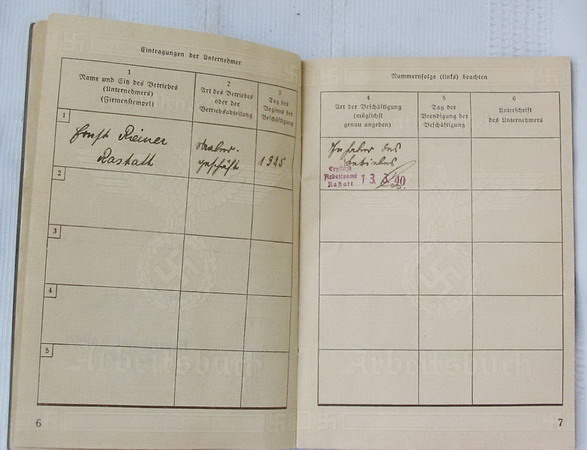 Eintragungen der Unternehmer
1
Name und Sitz des Betriebes
(Unternehmers)
(Firmenstempel)
2
Art des Betriebes
oder der
Betriebsabteilung
3
Tag des
Beginns der
Beschäftigung
1
Ernst Reiner
Rastatt
geschäft
1925
2
3
4
5
Arbeitsbuch
6
Nummernfolge (links) beachten
4
Art der Beschäftigung
(möglichst
genau angeben)
5
Tag der
Beendigung der
Beschäftigung
6
Unterschrift
des Unternehmers
Inhaber des
Betriebes
Ergänzt
Arbeitsamt
Rastatt
Arbeitsbuch
7